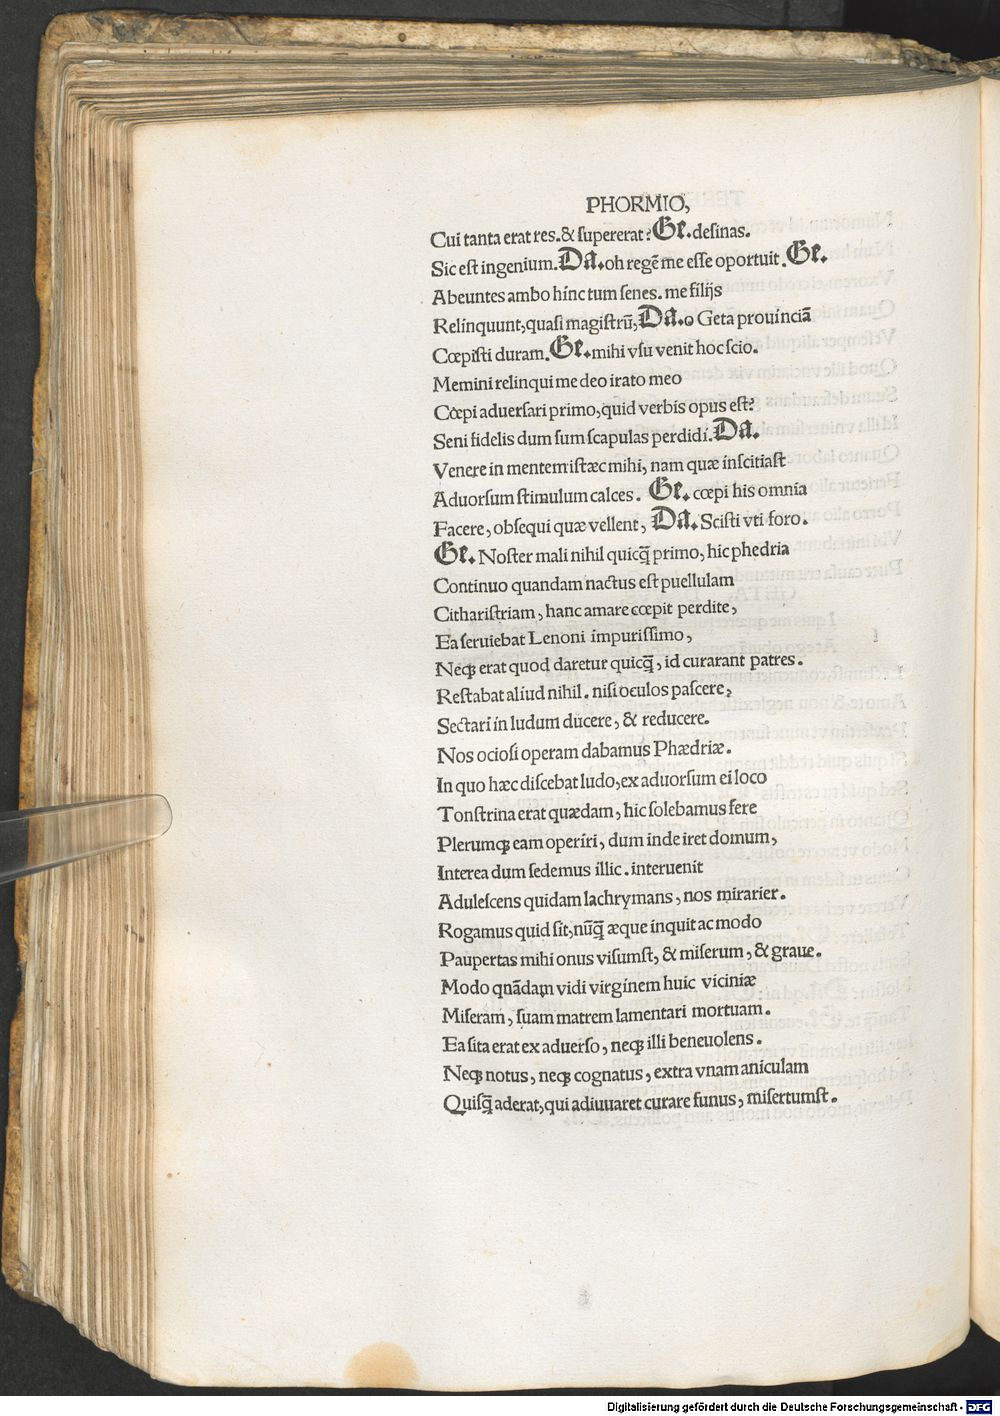 PHORMIO,
Cui tanta erat res.& ſupererat? Ge. deſinas.
Sic eſt ingenium. Da. oh regē me eſſe oportuit. Ge.
Abeuntes ambo hinc tum ſenes. me filijs
Relinquunt, quaſi magiſtrū, Da. o Geta prouinciā
Cœpiſti duram. Ge. mihi vſu venit hoc ſcio.
Memini relinqui me deo irato meo
Cœpi aduerſari primo, quid verbis opus eſt?
Seni fidelis dum ſum ſcapulas perdidi. Da.
Venere in mentem iſtæc mihi, nam quæ inſcitiaſt
Aduorſum ſtimulum calces. Ge. cœpi his omnia
Facere, obſequi quæ vellent, Da. Sciſti vti foro.
Ge. Noſter mali nihil quicq̄ primo, hic phedria
Continuo quandam nactus eſt puellulam
Cithariſtriam, hanc amare cœpit perdite,
Ea ſeruiebat Lenoni impuriſſimo,
Neqꝫ erat quod daretur quicq̄, id curarant patres.
Reſtabat aliud nihil. niſi oculos paſcere,
Sectari in ludum ducere, & reducere.
Nos ocioſi operam dabamus Phædriæ.
In quo hæc diſcebat ludo, ex aduorſum ei loco
Tonſtrina erat quædam, hic ſolebamus fere
Plerumqꝫ eam operiri, dum inde iret domum,
Interea dum ſedemus illic. interuenit
Aduleſcens quidam lachrymans, nos mirarier.
Rogamus quid ſit, nūq̄ æque inquit ac modo
Paupertas mihi onus viſumſt, & miſerum, & graue.
Modo quādam vidi virginem huic viciniæ
Miſeram, ſuam matrem lamentari mortuam.
Ea ſita erat ex aduerſo, neqꝫ illi beneuolens.
Neqꝫ notus, neqꝫ cognatus, extra vnam aniculam
Quiſq̄ aderat, qui adiuuaret curare funus, miſertumſt.
Digitalisierung gefördert durch die Deutsche Forschungsgemeinschaft - DFG